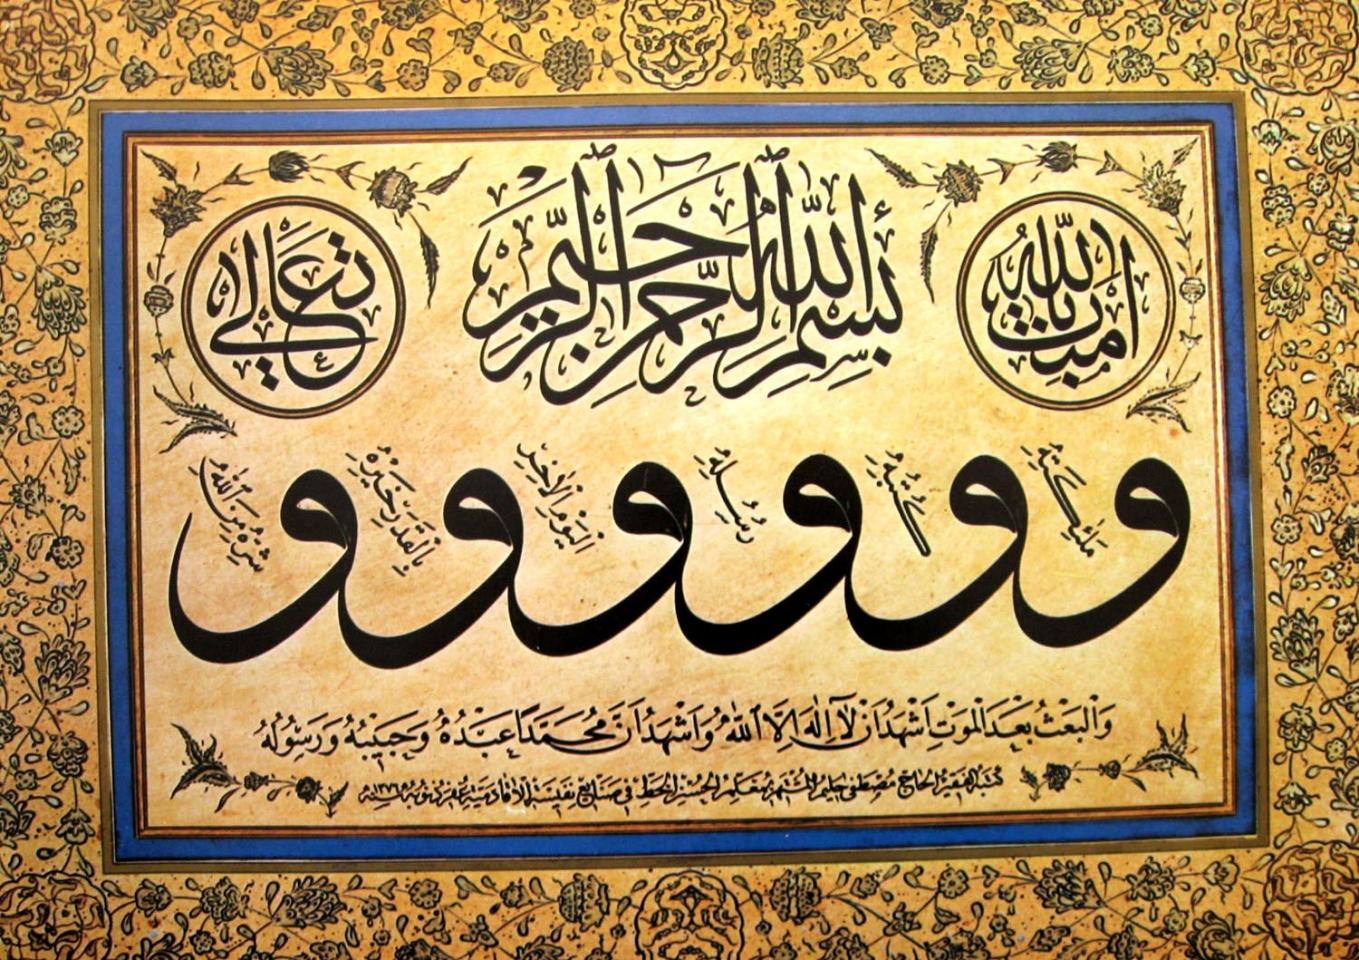 بسم الله الرحمن الرحيم
آمنت بالله
تعالى
و ملئكته و كتبه و رسله و اليوم الاخر و بالقدر خيره و شره من الله
والبعث بعد الموت اشهد ان لا اله الا الله واشهد ان محمدا عبده وحبيبه ورسوله
كتبه الفقير الحاج مصطفى حليم الشهير بمعلم الحسن الخط في صنايع نفيسة اقادميسي غفر ذنوبه سنه